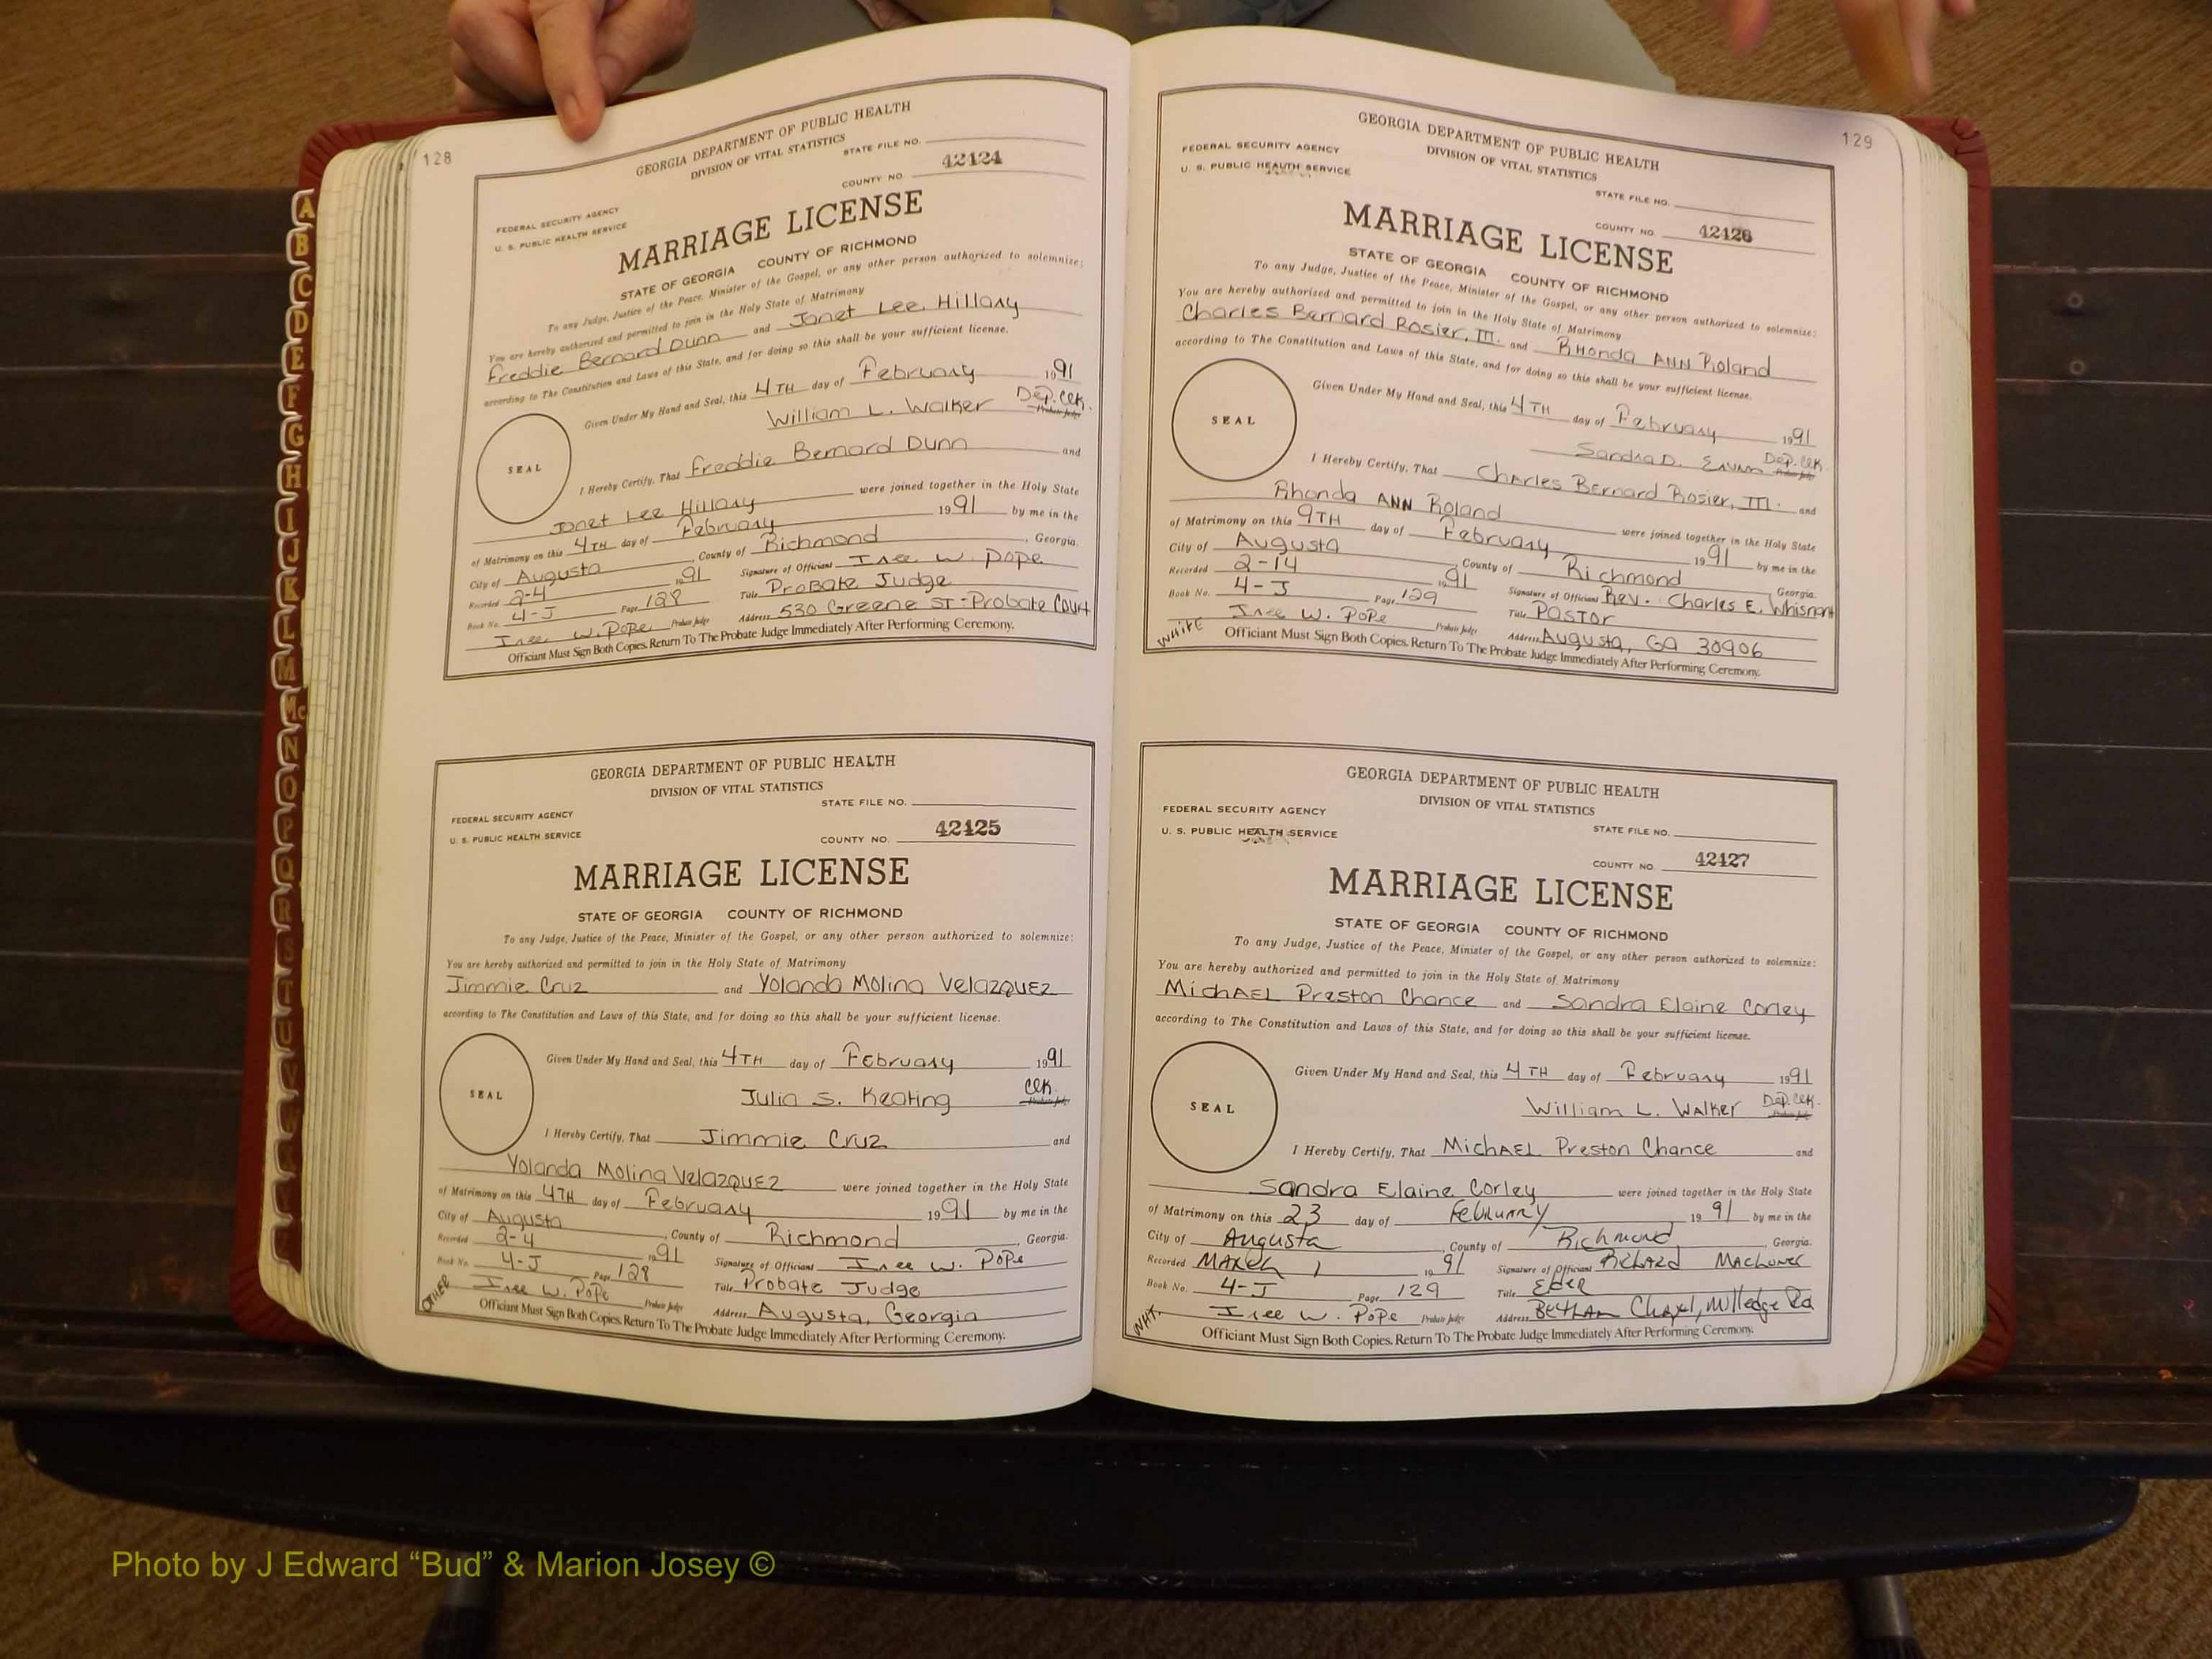 128
GEORGIA DEPARTMENT OF PUBLIC HEALTH
DIVISION OF VITAL STATISTICS
STATE FILE NO.
COUNTY NO 42424
FEDERAL SECURITY AGENCY
U. S. PUBLIC HEALTH SERVICE
MARRIAGE LICENSE
STATE OF GEORGIA COUNTY OF RICHMOND
To any Judge, Justice of the Peace, Minister of the Gospel, or any other person authorized to solemnize:
You are hereby authorized and permitted to join in the Holy State of Matrimony
Freddie Bernard Dunn and Janet Lee Hillary
according to The Constitution and Laws of this State, and for doing so this shall be your sufficient license.
Given Under My Hand and Seal, this 4TH day of February 1991
William L. Walker Dep. Clk. Probate Judge
SEAL
I Hereby Certify, That Freddie Bernard Dunn and
Janet Lee Hillary were joined together in the Holy State
of Matrimony on this 4TH day of February 1991 by me in the
City of Augusta, County of Richmond, Georgia.
Recorded 2-4 1991 Signature of Officiant Isee W. Pope
Book No. 4-J Page 128 Title Probate Judge
Isee W. Pope Probate Judge Address 530 Greene ST-Probate Court
Officiant Must Sign Both Copies. Return To The Probate Judge Immediately After Performing Ceremony.
GEORGIA DEPARTMENT OF PUBLIC HEALTH
DIVISION OF VITAL STATISTICS
STATE FILE NO.
FEDERAL SECURITY AGENCY
U. S. PUBLIC HEALTH SERVICE
COUNTY NO. 42425
MARRIAGE LICENSE
STATE OF GEORGIA COUNTY OF RICHMOND
To any Judge, Justice of the Peace, Minister of the Gospel, or any other person authorized to solemnize:
You are hereby authorized and permitted to join in the Holy State of Matrimony
Jimmie Cruz and Yolanda Molina Velazquez
according to The Constitution and Laws of this State, and for doing so this shall be your sufficient license.
Given Under My Hand and Seal, this 4TH day of February 1991
Julia S. Keating Clk. Probate Judge
SEAL
I Hereby Certify, That Jimmie Cruz and
Yolanda Molina Velazquez were joined together in the Holy State
of Matrimony on this 4TH day of February 1991 by me in the
City of Augusta, County of Richmond, Georgia.
Recorded 2-4 1991 Signature of Officiant Isee W. Pope
Book No. 4-J Page 128 Title Probate Judge
Isee W. Pope Probate Judge Address Augusta, Georgia
OTHER
Officiant Must Sign Both Copies. Return To The Probate Judge Immediately After Performing Ceremony.
129
GEORGIA DEPARTMENT OF PUBLIC HEALTH
DIVISION OF VITAL STATISTICS
FEDERAL SECURITY AGENCY
U. S. PUBLIC HEALTH SERVICE
STATE FILE NO.
COUNTY NO. 42426
MARRIAGE LICENSE
STATE OF GEORGIA COUNTY OF RICHMOND
To any Judge, Justice of the Peace, Minister of the Gospel, or any other person authorized to solemnize:
You are hereby authorized and permitted to join in the Holy State of Matrimony
Charles Bernard Rosier, III. and Rhonda Ann Roland
according to The Constitution and Laws of this State, and for doing so this shall be your sufficient license.
Given Under My Hand and Seal, this 4TH day of February 1991
Sandra D. Dep. Clk. Probate Judge
SEAL
I Hereby Certify, That Charles Bernard Rosier, III. and
Rhonda Ann Roland were joined together in the Holy State
of Matrimony on this 9TH day of February 1991 by me in the
City of Augusta County of Richmond Georgia.
Recorded 2-14 1991 Signature of Officiant Rev. Charles E. Whisnant
Book No. 4-J Page 129 Title Pastor
Isee W. Pope Probate Judge Address Augusta, GA 30906
WHITE
Officiant Must Sign Both Copies. Return To The Probate Judge Immediately After Performing Ceremony.
GEORGIA DEPARTMENT OF PUBLIC HEALTH
DIVISION OF VITAL STATISTICS
FEDERAL SECURITY AGENCY
U. S. PUBLIC HEALTH SERVICE
STATE FILE NO.
COUNTY NO 42427
MARRIAGE LICENSE
STATE OF GEORGIA COUNTY OF RICHMOND
To any Judge, Justice of the Peace, Minister of the Gospel, or any other person authorized to solemnize:
You are hereby authorized and permitted to join in the Holy State of Matrimony
Michael Preston Chance and Sandra Elaine Corley
according to The Constitution and Laws of this State, and for doing so this shall be your sufficient license.
Given Under My Hand and Seal, this 4TH day of February 1991
William L. Walker Dep. Clk. Probate Judge
SEAL
I Hereby Certify, That Michael Preston Chance and
Sandra Elaine Corley were joined together in the Holy State
of Matrimony on this 23 day of February 1991 by me in the
City of Augusta, County of Richmond, Georgia.
Recorded March 1 1991 Signature of Officiant Richard Machower
Book No. 4-J Page 129 Title Elder
Isee W. Pope Probate Judge Address Betham Chapel, Milledge Rd
WHT.
Officiant Must Sign Both Copies. Return To The Probate Judge Immediately After Performing Ceremony.
A
B
C
D
E
F
G
H
I
J
K
L
M
Mc
N
O
P
Q
R
S
T
U
Photo by J Edward “Bud” & Marion Josey ©